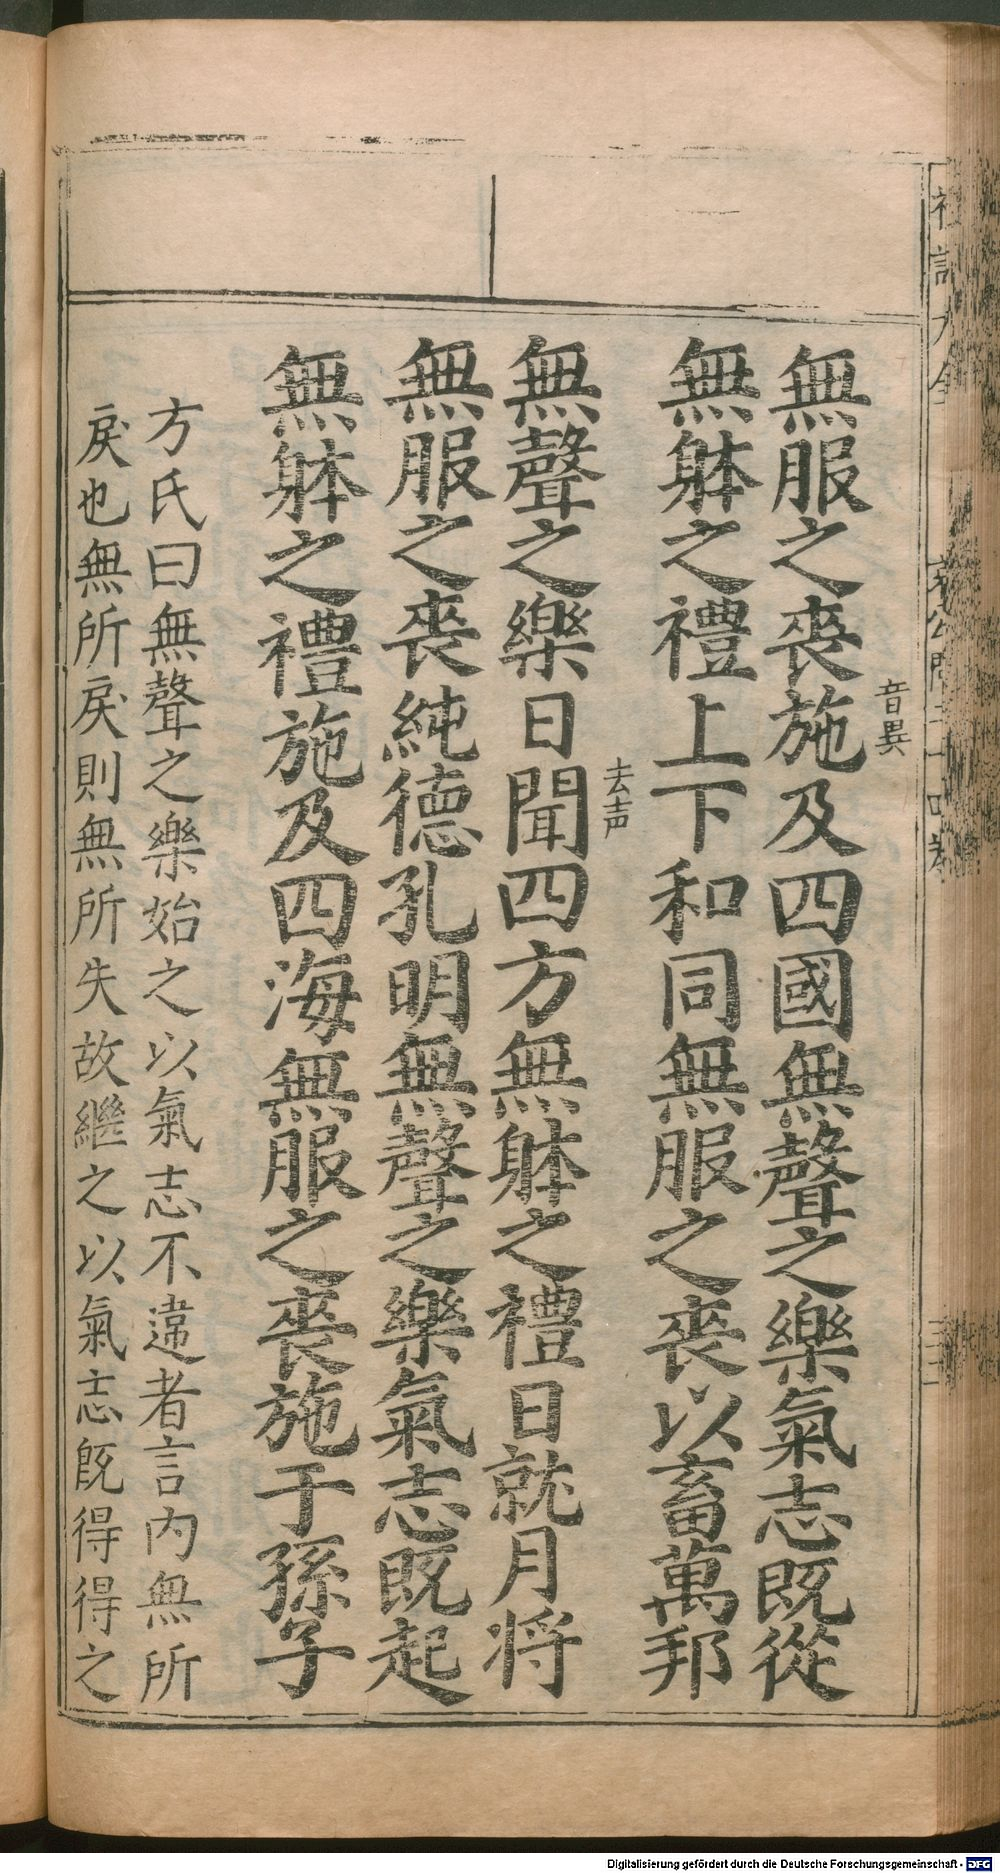 無服之喪施及四國無聲之樂氣志既從
音異
無躰之禮上下和同無服之喪以畜萬邦
無聲之樂日聞四方無躰之禮日就月将
去声
無服之喪純德孔明無聲之樂氣志既起
無躰之禮施及四海無服之喪施于孫子
方氏曰無聲之樂始之以氣志不違者言内無所
戾也無所戾則無所失故継之以氣志既得得之
Digitalisierung gefördert durch die Deutsche Forschungsgemeinschaft - DFG